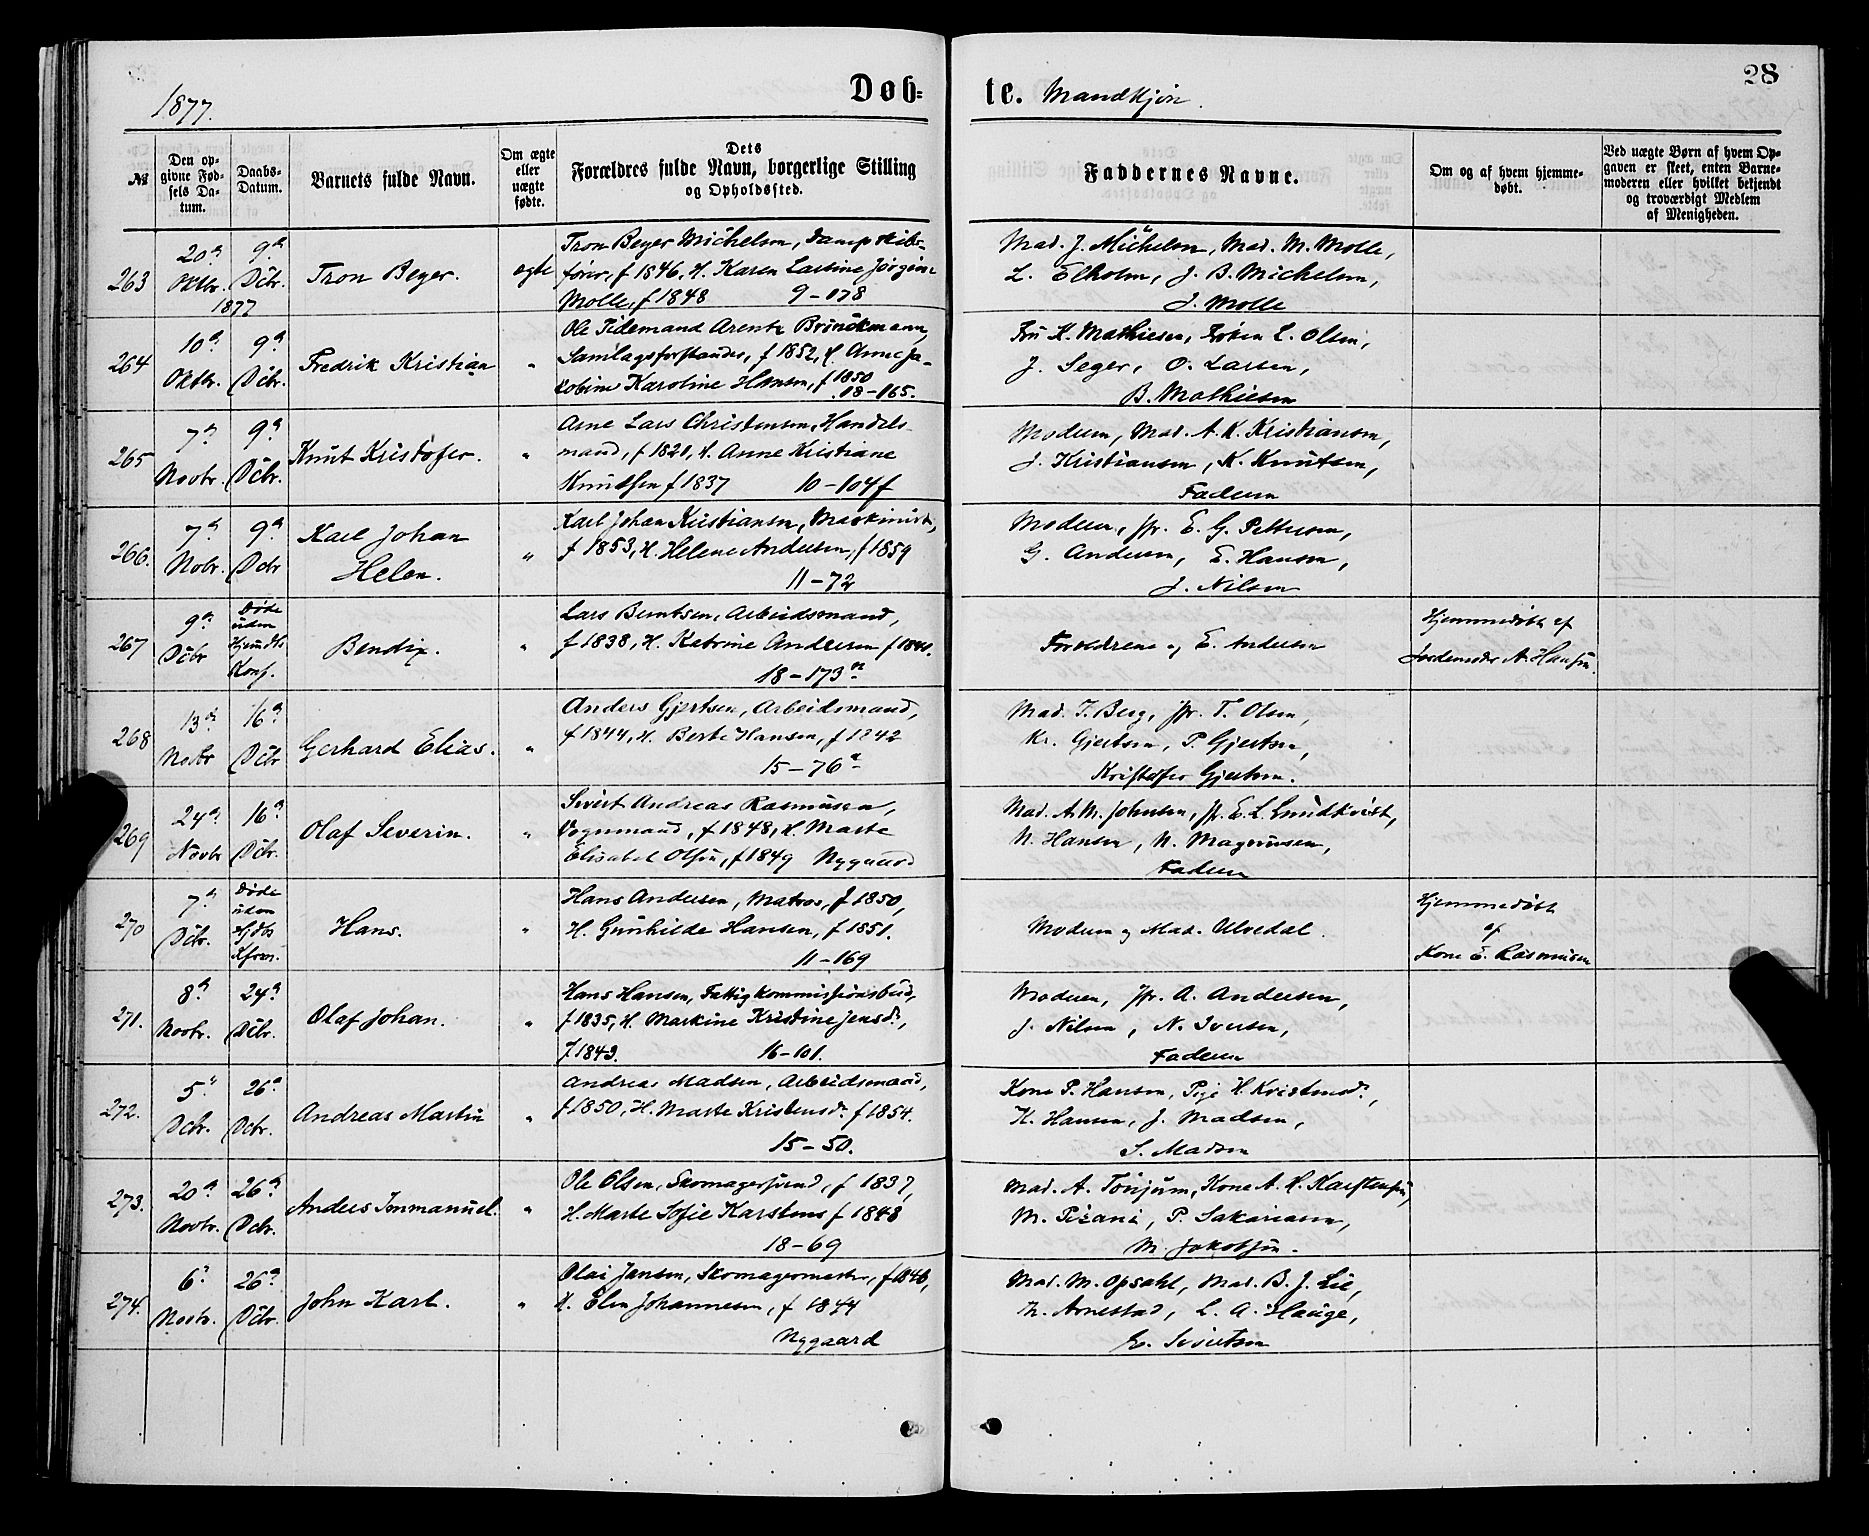 1877.
Døb-
te. Mandkjøn.
28
№
Den opgivne Fødsels Datum.
Daabs-Datum.
Barnets fulde Navn.
Om ægte eller uægte fødte.
Dets Forældres fulde Navn, borgerlige Stilling og Opholdssted.
Faddernes Navne.
Om og af hvem hjemmedøbt.
Ved uægte Børn af hvem Opgaven er skeet, enten Barnemoderen eller hvilket bekjendt og troværdigt Medlem af Menigheden.
263
20de Oktbr. 1877
9de Dcbr.
Tron Beyer.
ægte
Tron Beyer Michelsen, Dampskibs-
fører, f 1846, H. Karen Lartine Jørgine
Molle, f 1848 9-078
Mad. J. Michelsen, Mad. M. Molle,
L. Elholm, J. B. Michelsen,
J. Molle
264
10de Oktbr.
9de Dcbr.
Fredrik Kristian
"
Ole Tidemand Arentz Brinckmann,
Samlagsforstander, f 1852, H. Anne Ja-
kobine Karoline Hansen, f 1850
18-165.
Fru K. Mathiesen, Frøken L. Olsen,
J. Seger, O. Larsen,
B. Mathiesen
265
7de Novbr.
9de Dcbr.
Knut Kristofer.
"
Arne Lars Christensen, Handels-
mand, f 1821, H. Anne Kristiane
Knudsen f 1837 10-104f
Moderen, Mad. A. K. Kristiansen,
J. Kristiansen, K. Knutsen,
Faderen
266.
7de Nobr.
9de Dcbr
Karl Johan
Helen.
"
Karl Johan Kristiansen, Maskinist,
f 1853, H. Helene Andersen, f 1859
11-72
Moderen, Jfr. E. G. Pettersen,
G. Andersen, E. Hansen,
J. Nilsen
267
9de Dcbr
Døde uden Hjemdbs Konf.
Bendix.
"
Lars Berntsen, Arbeidsmand,
f 1838, H. Katrine Andersen f 1841.
18-173a
Forældrene og E. Andersen
Hjemmedøbt af
Jordemoder A. Hansen.
268
13de Novbr
16de Dcbr
Gerhard Elias.
"
Anders Gjertsen, Arbeidsmand,
f 1844, H. Berte Hansen, f 1842
15-76a
Mad. T. Berg, Jfr. T. Olsen,
Kr. Gjertsen, P. Gjertsen,
Kristofer Gjertsen.
269
24de Novbr
16de Dcbr.
Olaf Severin.
"
Sivert Andreas Rasmussen,
Vognmand, f 1848, H. Marte
Elisabet Olsen, f 1849 Nygaard
Mad. A. M. Johnsen, Jfr. E. L. Lundkvist,
N. Hansen, N. Magnussen,
Faderen
270
7de Dcbr.
Døde uden Hjdbs Kfrm.
Hans.
"
Hans Andersen, Matros, f 1850,
H. Gunhilde Hansen, f 1851.
11-169
Moderen og Mad. Ulvedal.
Hjemmedøbt
af
Kone E. Rasmussen
271.
8de Novbr.
24de Dcbr.
Olaf Johan.
"
Hans Hansen, Fattigkommissionsbud,
f 1835, H. Markine Kristine Jensdr,
f 1843. 16-101.
Moderen, Jfr. A. Andersen,
J. Nilsen, N. Iversen,
Faderen
272.
5te Dcbr.
26de Dcbr.
Andreas Martin
"
Andreas Madsen, Arbeidsmand,
f 1850, H. Marte Kristensdr. f 1854.
15-50.
Kone P. Hansen, Pige H. Kristensdr,
K. Hansen, J. Madsen,
S. Madsen
273.
20de Novbr.
26de Dcbr.
Anders Immanuel.
"
Ole Olsen, Skomagersvend, f 1837,
H. Marte Sofie Karstens f 1843
18-69
Mad. A. Tönjum, Kone A. H. Karstensen,
M. Pizani, P. Sakariasen,
M. Jakobsen.
274.
6te Novbr.
26de Dcbr.
John Karl.
"
Olai Jansen, Skomagermester, f 1846,
H. Elen Johannesen, f 1844
Nygaard
Mad. M. Opsahl, Mad. B. J. Lie,
Th. Arnestad, L. A. Hauge,
E. Sivertsen